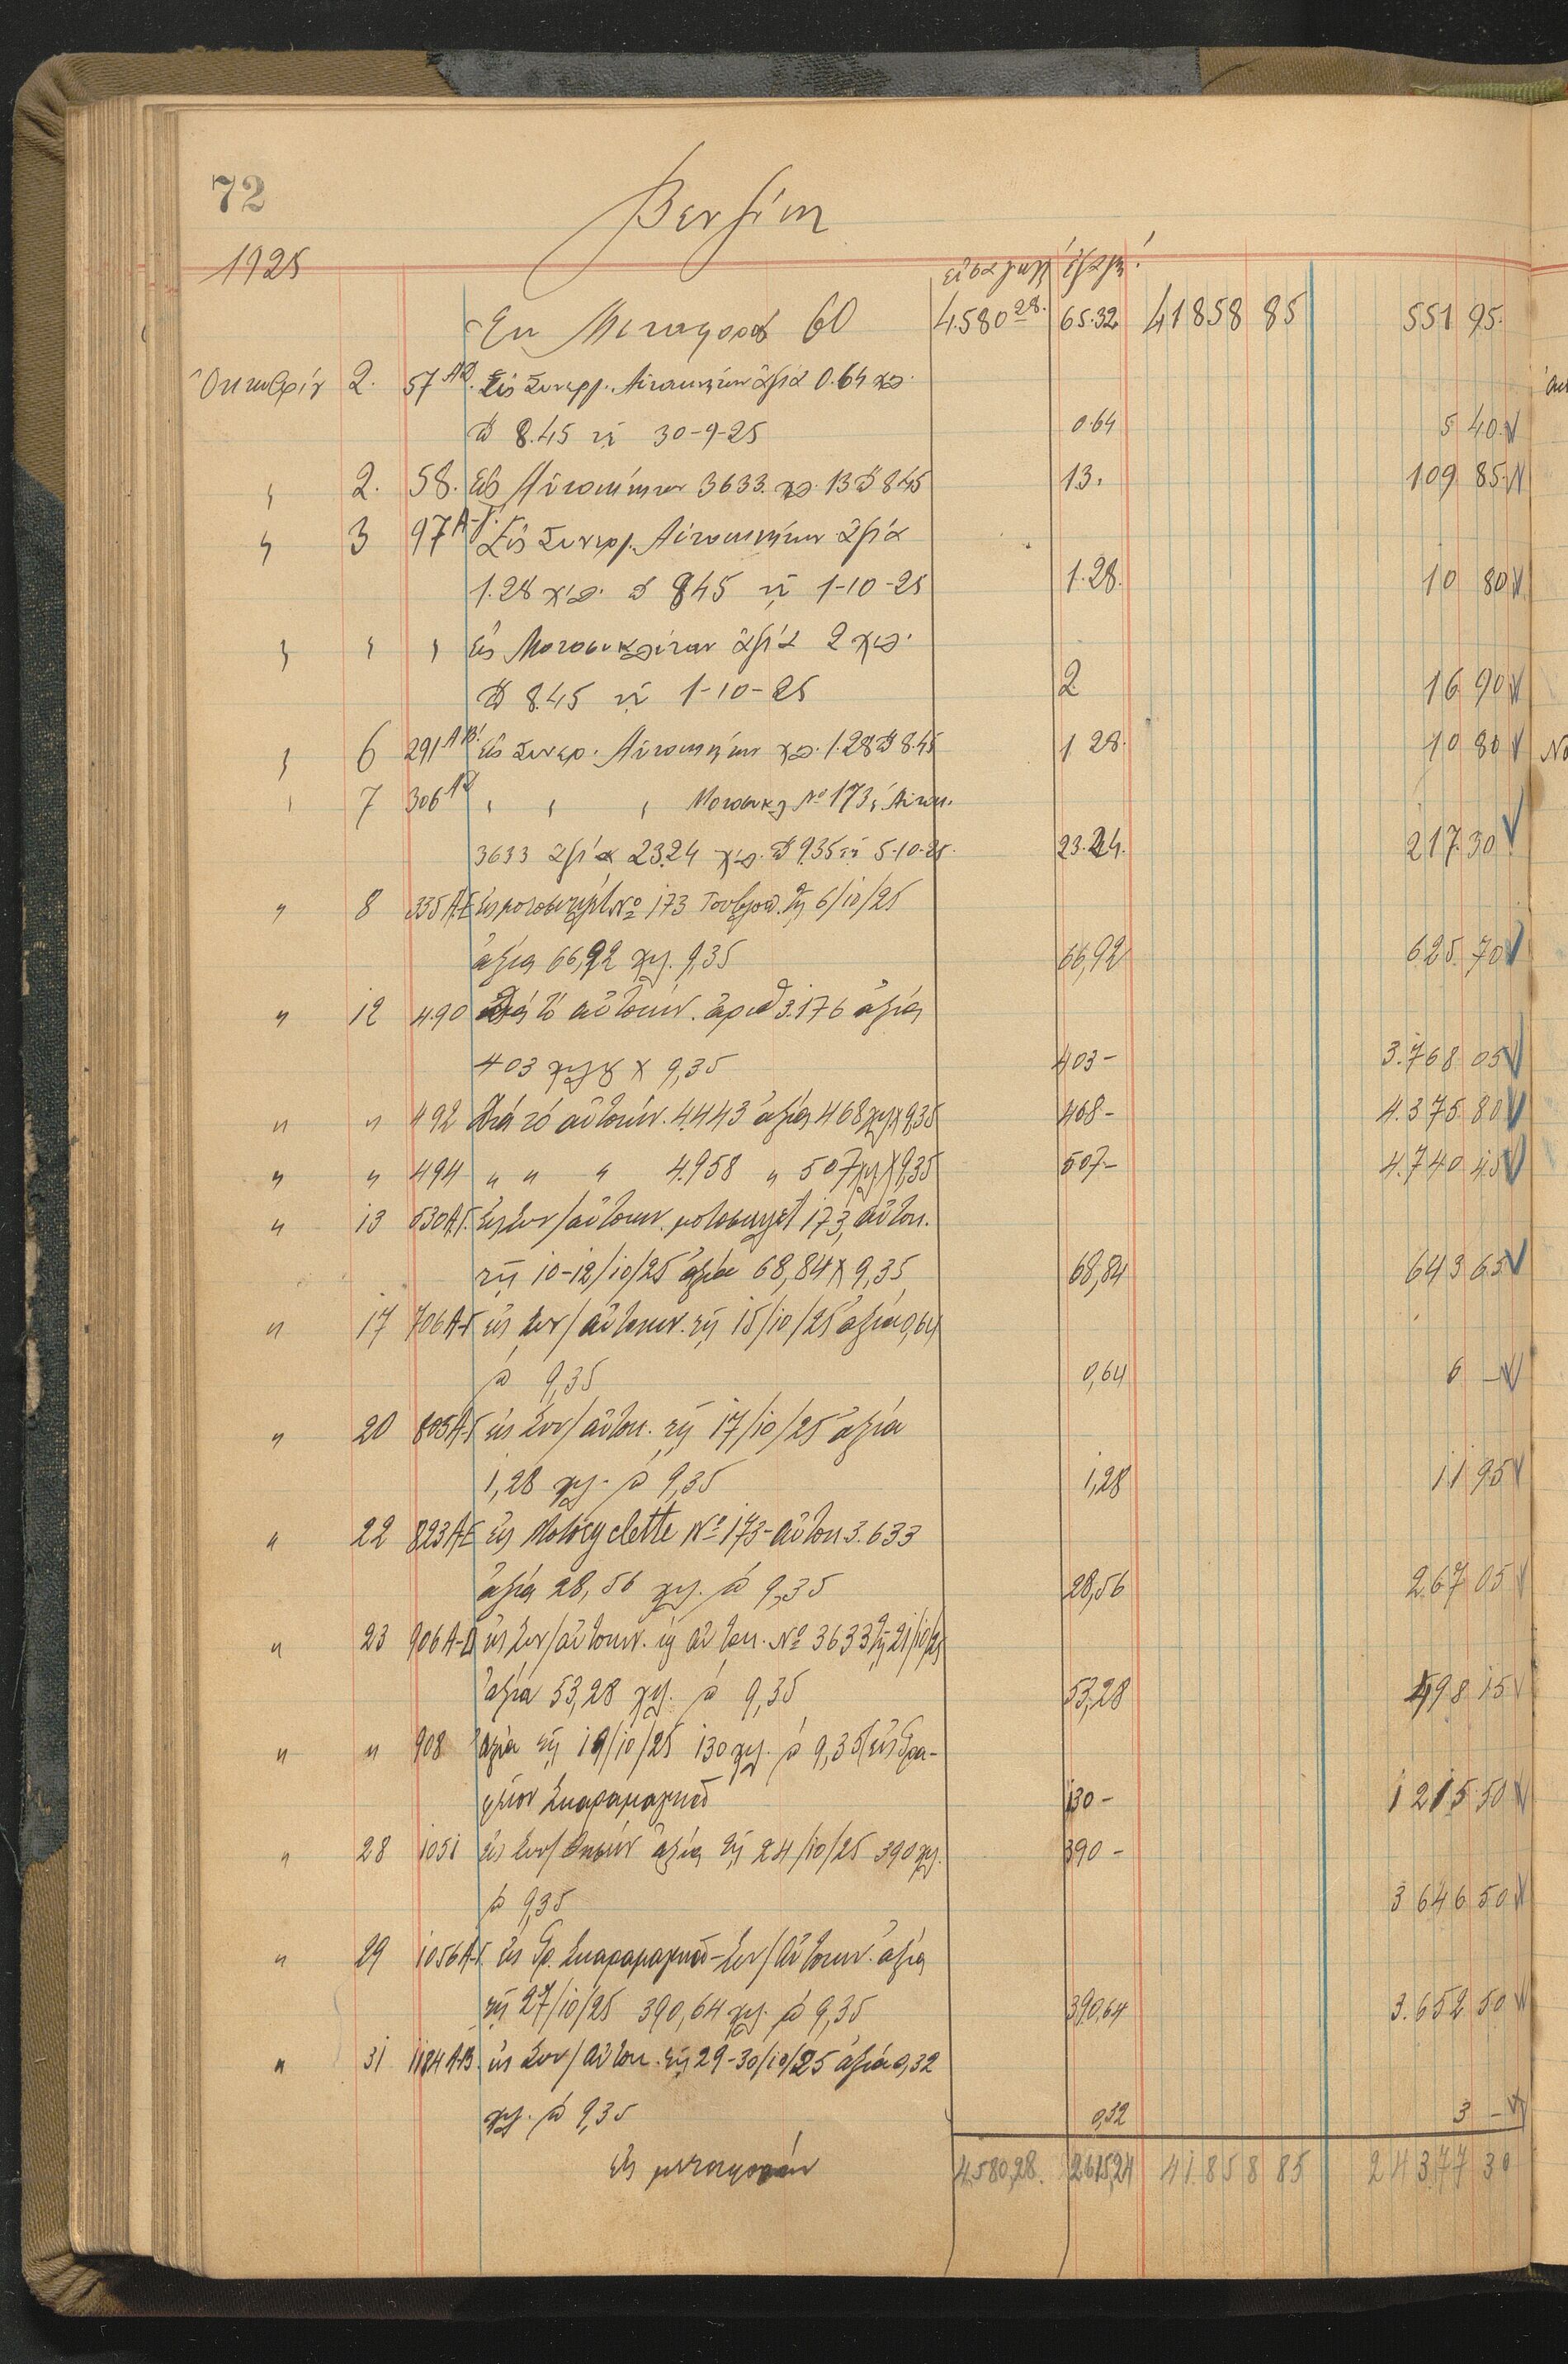 72
Βενζίνη
1925
εἰσαγωγή ἐξαγωγή
Ἐκ Μεταφορᾶς 60 4.580 28. 65.32 41858 85 551 95.
Ὀκτωβρίου 2. 57 Εἰς Συνεργ. Αὐτοκινήτων ἀξία 0.64 χλ.
8.45 τῇ 30-9-25 0.64 5 40
" 2. 58. Εἰς Αὐτοκίνητον 3633. χλ. 13 8.45 13. 109 85
" 3 97 Α-Γ. Εἰς Συνεργ. Αὐτοκινήτων ἀξία
1.28 χλ. 8.45 τῇ 1-10-25 1.28. 10 80
" " " Εἰς Μοτοσυκλέταν ἀξία 2 χλ.
8.45 τῇ 1-10-25 2 16 90
" 6 291 ΑΒ. Εἰς Συνερ. Αὐτοκινήτων χλ. 1.28 8.45 1 28. 10 80
" 7 306 " " " Μοτοσυκλ No 173, Αὐτοκ.
3633 ἀξία 23.24 χλ. 9.35 τῇ 5-10-25. 23.24. 217.30
" 8 335 Α-Ε εἰς μοτοσυκλέτ. No 173 τῇ 6/10/25
ἀξία 66,92 χλ. 9,35 66,92 625. 70
" 12 490 Διά τό αὐτοκίν. ἀριθ 3.176 ἀξία
403 χλγ χ 9,35 403- 3.768 05
" " 492 Διά τό αὐτοκίν. 4.443 ἀξία 468 χλχ 9,35 468- 4.375 80
" " 494 " " " 4.958 " 507 χλ χ 9,35 507- 4.740 45
" 13 530 Α-Γ. Εἰς Συν/αὐτοκιν. μοτοσυκλέτ 173, αὐτοκ.
τῇ 10-12/10/25 ἀξία 68,84 χ 9,35 68,84 643 65
" 17 706 Α-Γ εἰς Συν/αὐτοκιν. τῇ 15/10/25 ἀξία 0,64
ἀ 9,35 0,64 6 -
" 20 805 Α-Γ εἰς Συν/αὐτοκ. τῇ 17/10/25 ἀξία
1,28 χλ. ἀ 9,35 1,28 11 95
" 22 823 Α-Ε εἰς Motocyclette No 173- αὐτοκ 3.633
ἀξία 28,56 χλ. ἀ 9,35 28,56 267 05
" 23 906 Α-Δ εἰς Συν/αὐτοκιν. εἰς αὐτοκ. No 3633 τῇ 21/10/25
ἀξία 53,28 χλ. ἀ 9,35 53,28 498 15
" " 908 ἀξία τῇ 19/10/25 130 χλ. ἀ 9,35 εἰς Γρα-
φεῖον Σκαραμαγκᾶ 130- 1 215 50
" 28 1051 εἰς Συν/ ἀξία τῇ 24/10/25 390 χλ. 390 -
ἀ 9,35 3 646 50
" 29 1056 Α-Γ. εἰς Γρ. Σκαραμαγκᾶ-Συν/αὐτοκιν. ἀξία
τῇ 27/10/25 390,64 χλ. ἀ 9,35 390,64 3.652 50
" 31 1184 Α-Β. εἰς Συν/αὐτοκ. τῇ 29-30/10/25 ἀξία 0,32
χλ. ἀ 9,35 0,32 3 -
Εἰς μεταφοράν 4.580,28. 2615,24 41.858 85 24377 30